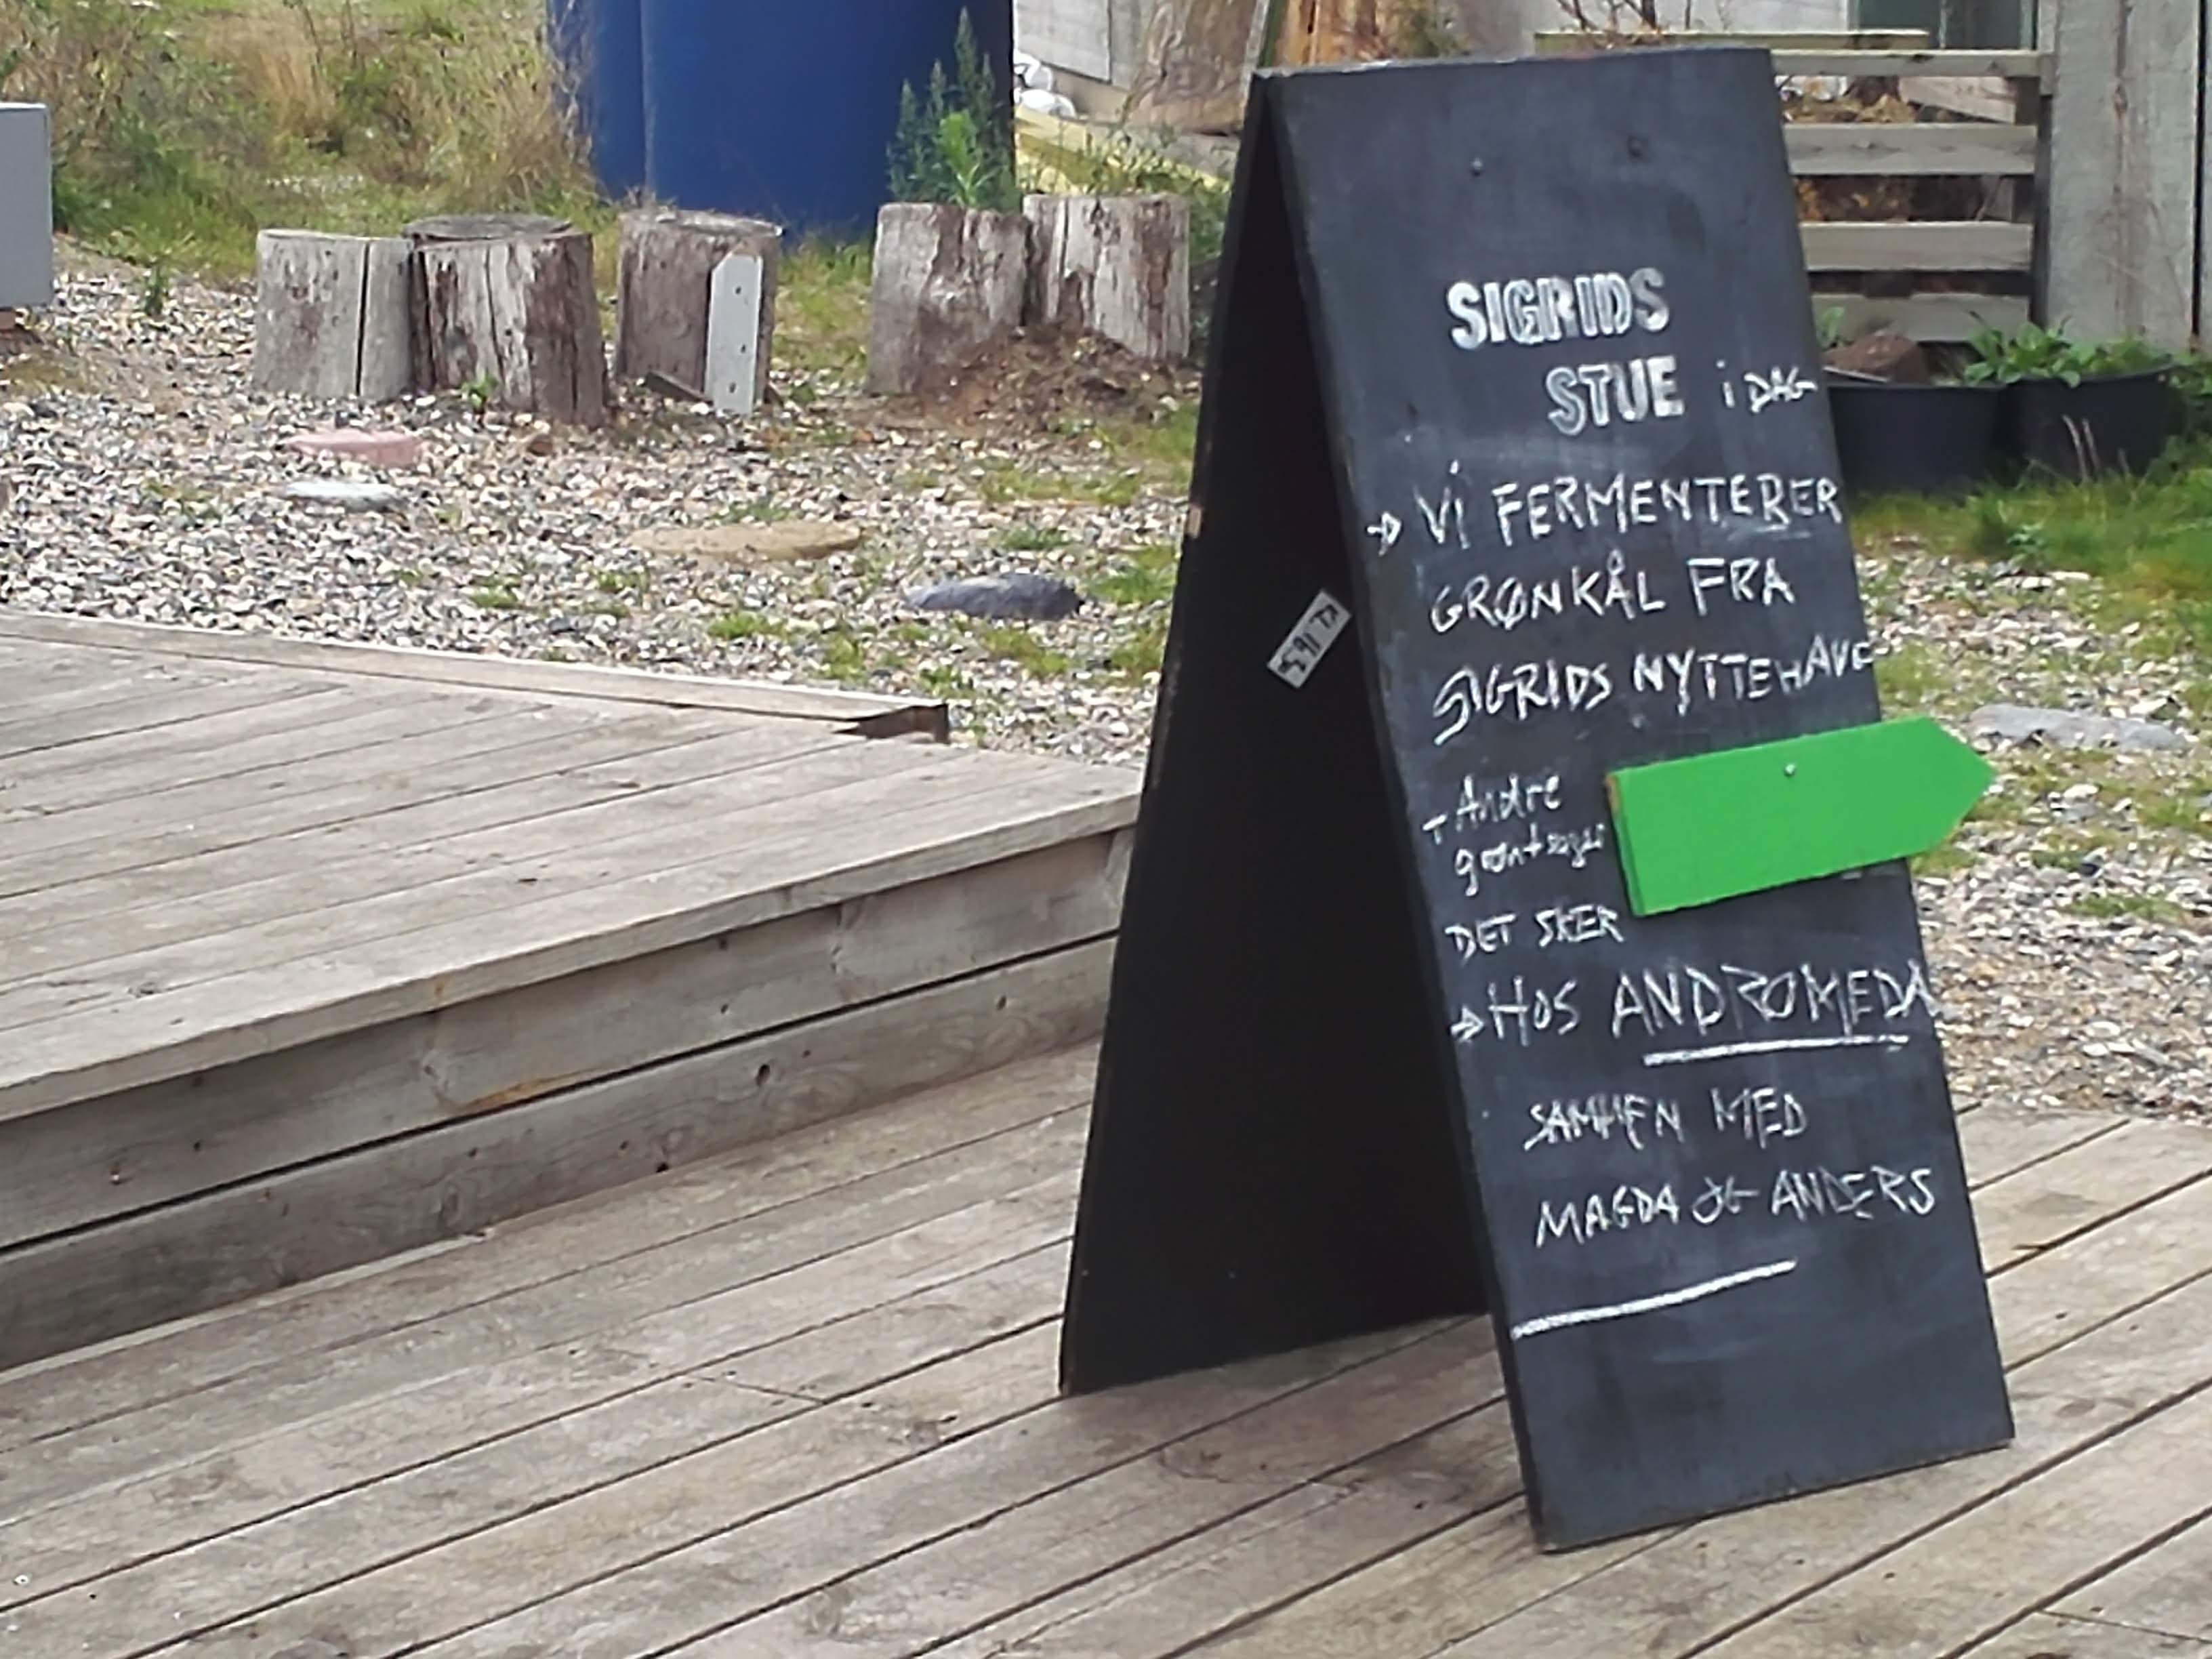 SIGRIDS
STUE i DAG
→ Vi FERMENTERER
GRØNKÅL FRA
SIGRIDS NYTTEHAVE
+ Andre
grøntsager
DET SKER
→ HOS ANDROMEDA
SAMMEN MED
MAGDA OG ANDERS